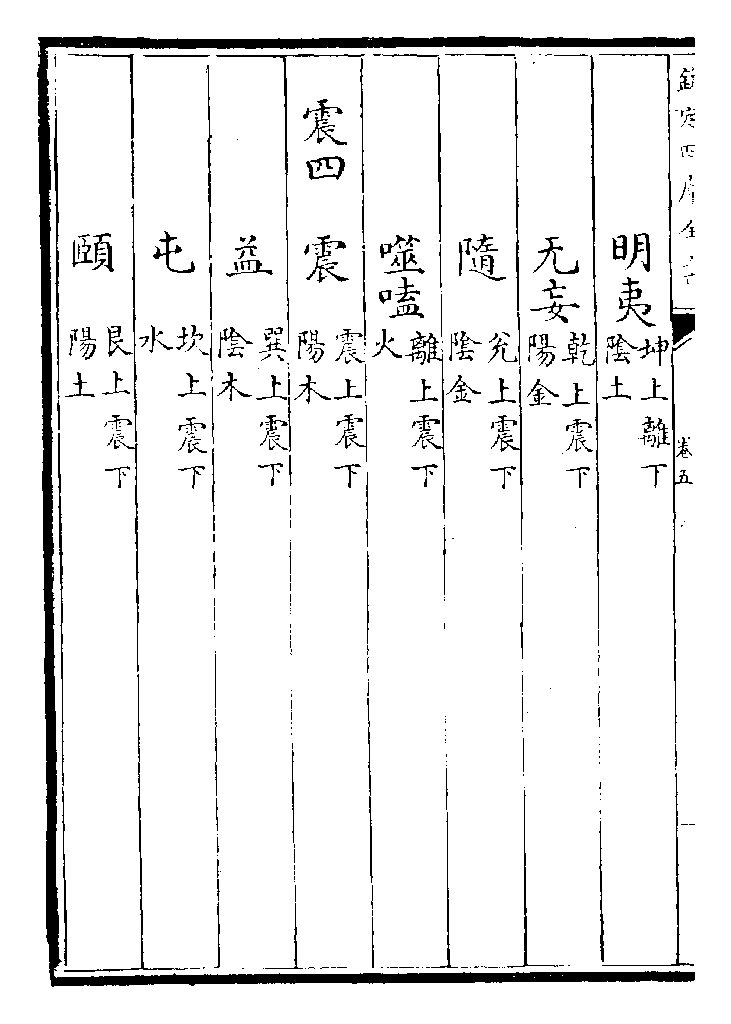 欽定四庫全書
卷五
明夷
坤上離下
陰土
无妄
乾上震下
陽金
隨
兊上震下
陰金
噬嗑
離上震下
火
震四
震
震上震下
陽木
益
巽上震下
陰木
屯
坎上震下
水
頤
艮上震下
陽土